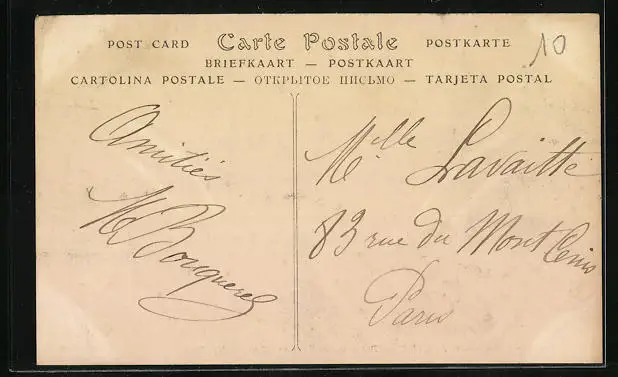 POST CARD Carte Postale POSTKARTE
BRIEFKAART — POSTKAART
CARTOLINA POSTALE — ОТКРЫТОЕ ПИСЬМО — TARJETA POSTAL
10
Amitiés
M Bouquerel
Melle Lavaitte
83 rue du Mont Cenis
Paris